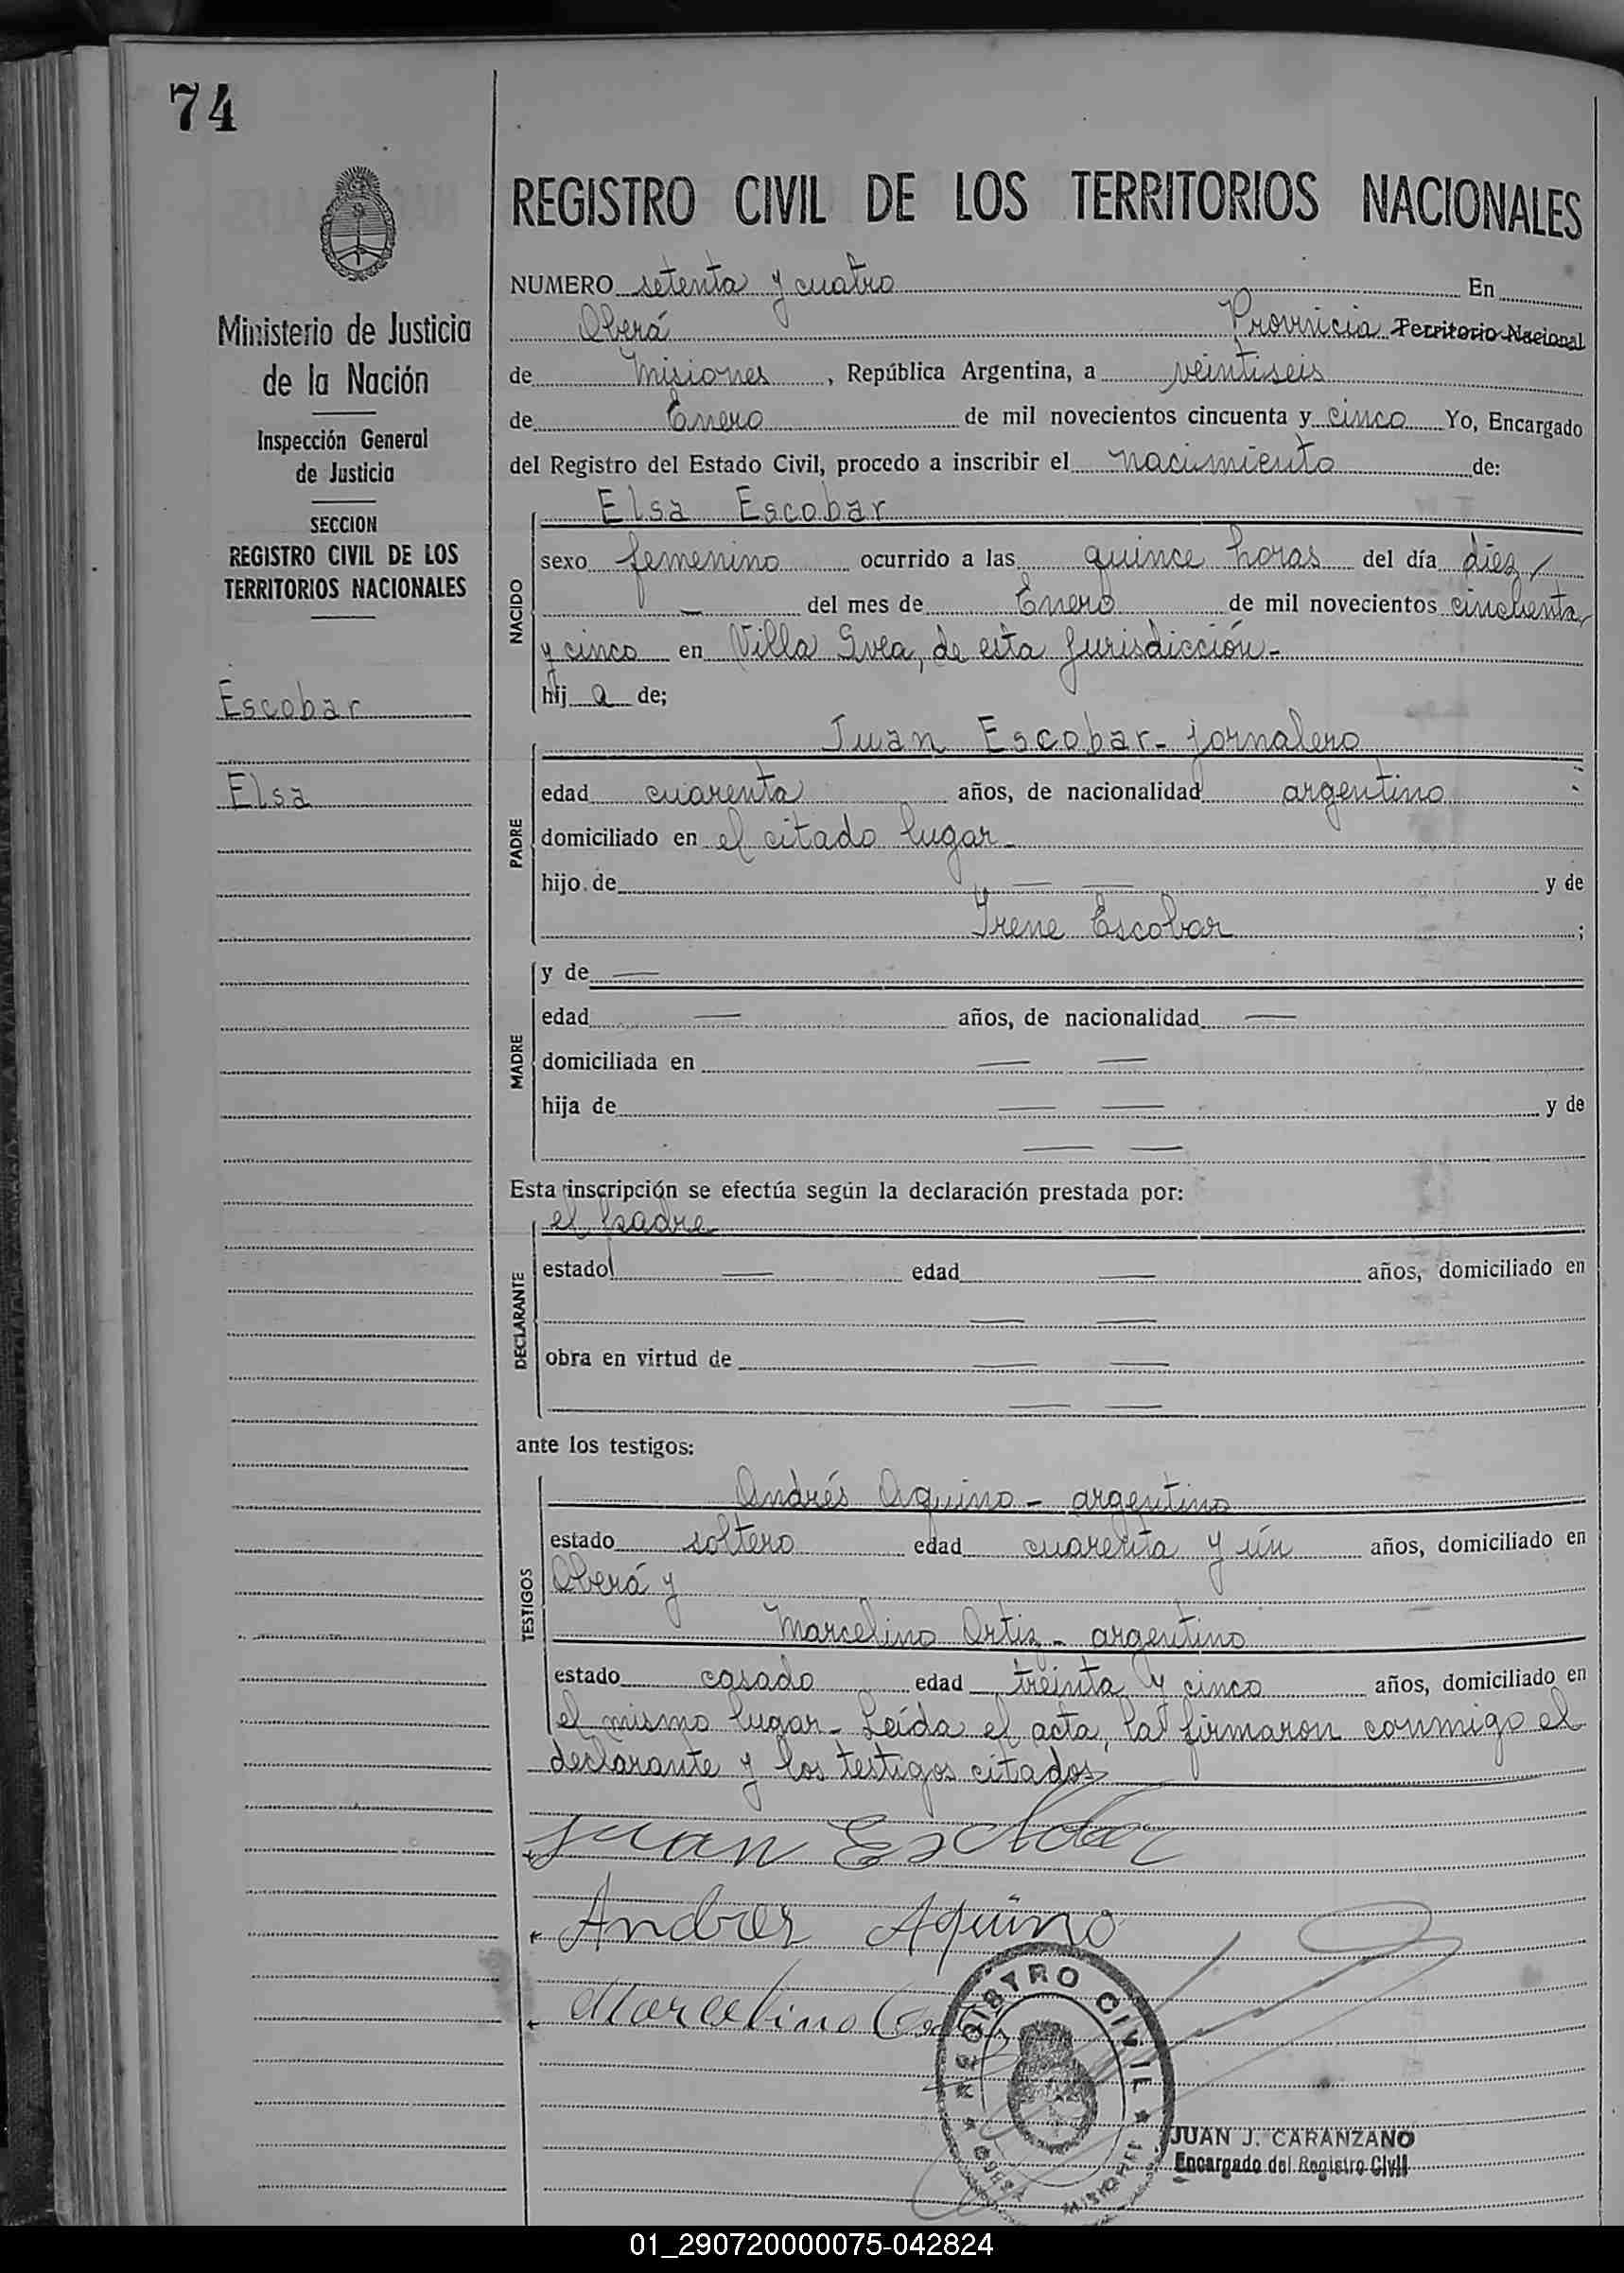 74
REGISTRO CIVIL DE LOS TERRITORIOS NACIONALES
NUMERO setenta y cuatro En
Oberá Provincia Territorio Nacional
de Misiones, República Argentina, a veintiseis
de Enero de mil novecientos cincuenta y cinco Yo, Encargado
del Registro del Estado Civil, procedo a inscribir el nacimiento de:
Ministerio de Justicia
de la Nación
Inspección General
de Justicia
SECCION
REGISTRO CIVIL DE LOS
TERRITORIOS NACIONALES
Escobar
Elsa
NACIDO
Elsa Escobar
sexo femenino ocurrido a las quince horas del día diez/
— del mes de Enero de mil novecientos cincuenta
y cinco en Villa Svea, de esta Jurisdicción-
hij a de;
PADRE
Juan Escobar- jornalero
edad cuarenta años, de nacionalidad argentino
domiciliado en el citado lugar-
hijo de — — y de
Irene Escobar ;
MADRE
y de —
edad — años, de nacionalidad —
domiciliada en — —
hija de — — y de
— —
Esta inscripción se efectúa según la declaración prestada por:
DECLARANTE
el padre
estado — edad — años, domiciliado en
— —
obra en virtud de — —
— —
ante los testigos:
TESTIGOS
Andrés Aquino - argentino
estado soltero edad cuarenta y ún años, domiciliado en
Oberá y
Marcelino Ortiz - argentino
estado casado edad treinta y cinco años, domiciliado en
el mismo lugar- Leída el acta, la firmaron conmigo el
declarante y los testigos citados
Juan Escobar
Andres Aquino
Marcelino Ortiz
REGISTRO CIVIL
OBERA MISIONES
JUAN J. CARANZANO
Encargado del Registro Civil
01_290720000075-042824